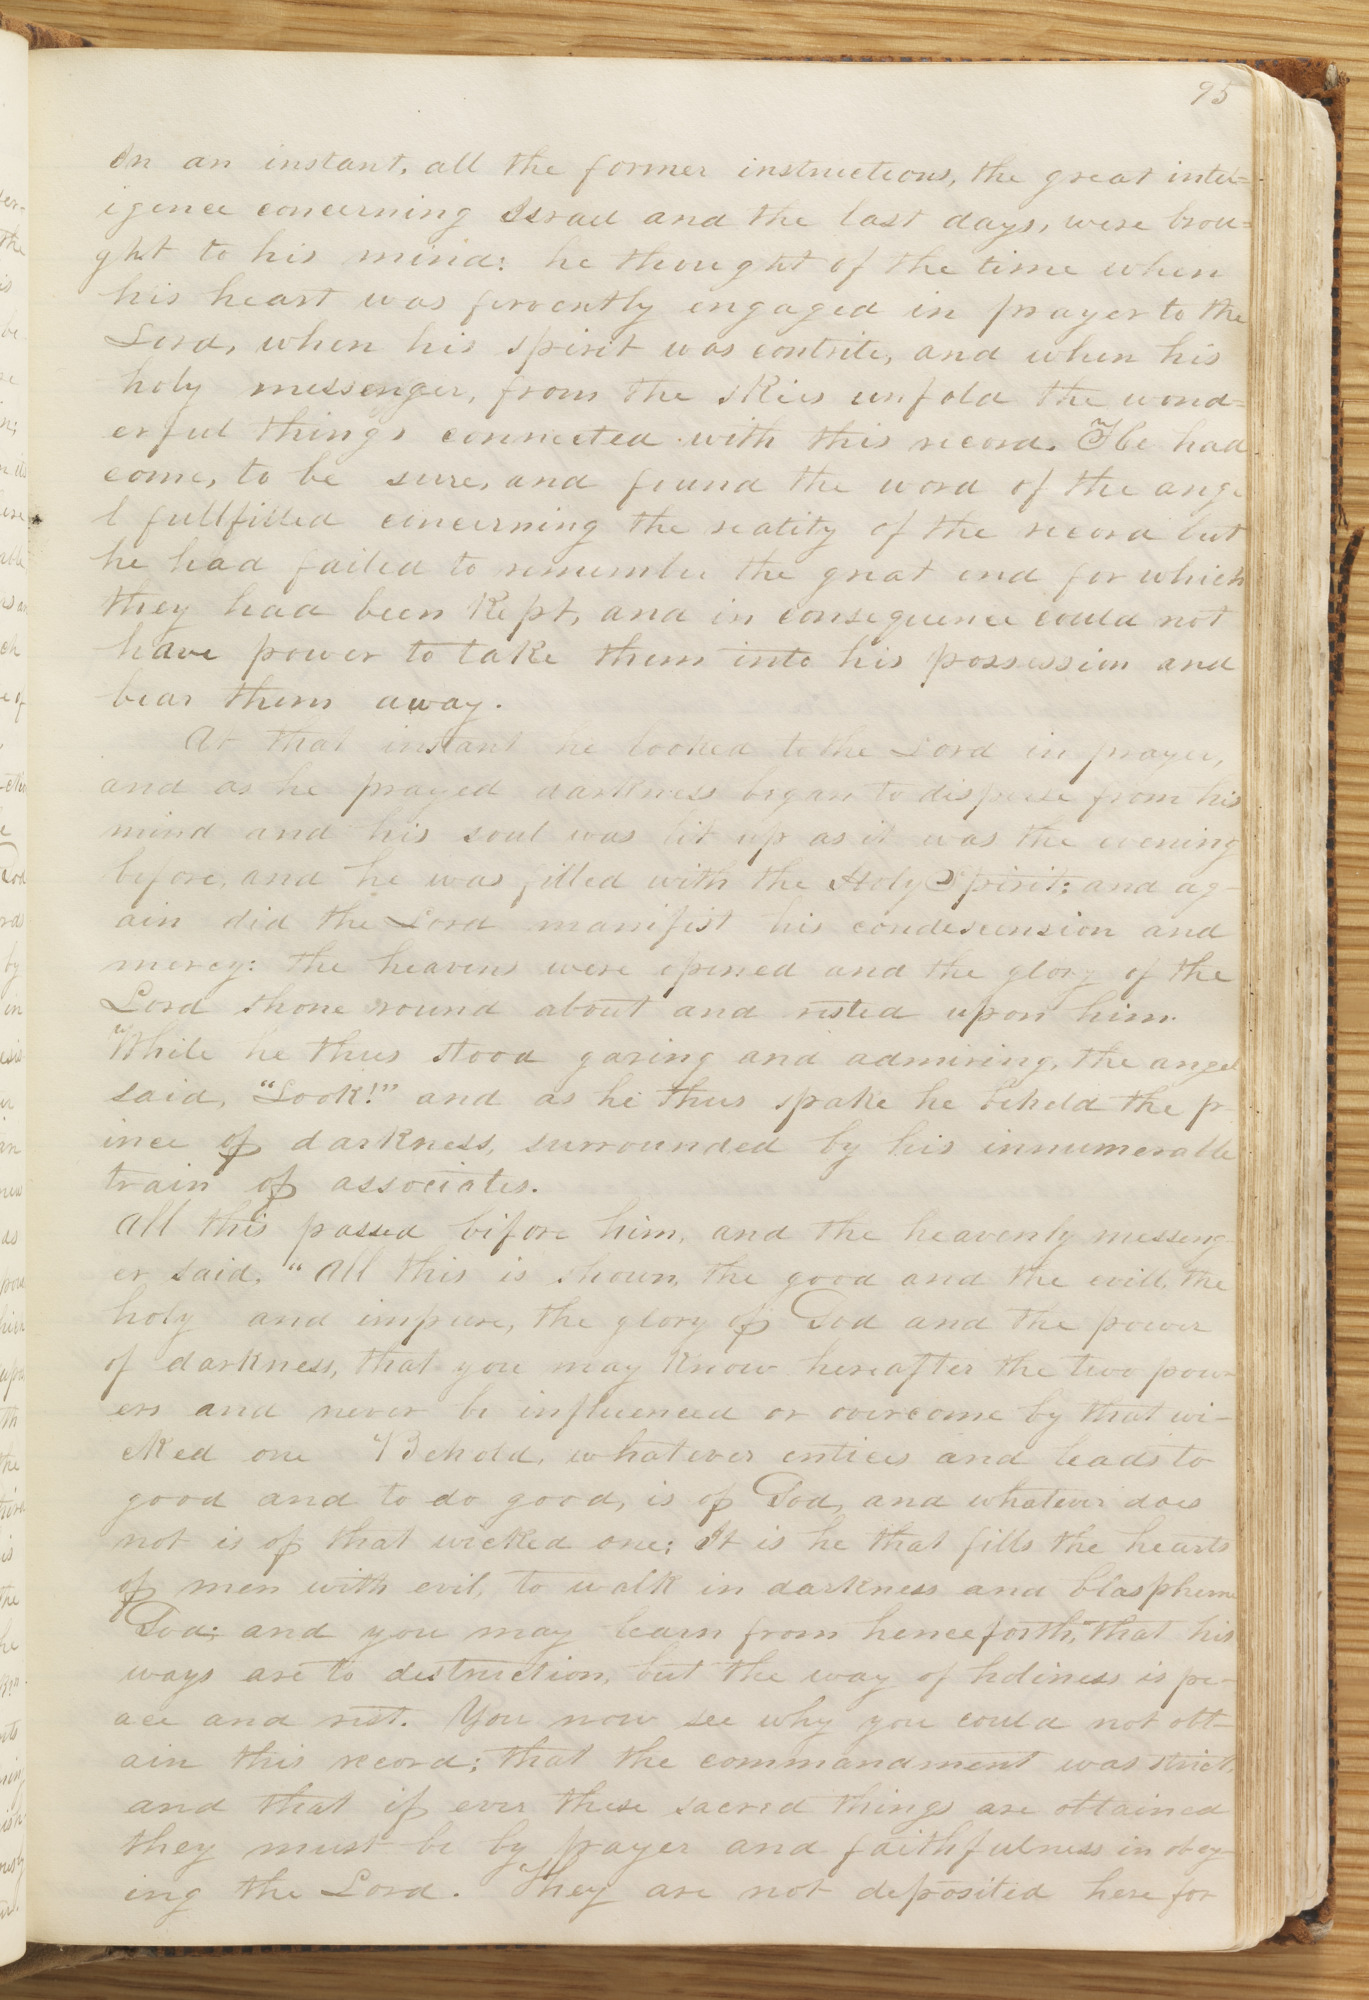 95
In an instant, all the former instructions, the great intel=
igence concerning Israel and the last days, were brou=
ght to his mind: he thought of the time when
his heart was fervently engaged in prayer to the
Lord, when his spirit was contrite, and when his
holy messenger, from the skies unfold the wond=
erful things connected with this record. He had
come, to be sure, and found the word of the ange
l fullfilled concerning the reality of the record but
he had failed to remember the great end for which
they had been kept, and in consequence could not
have power to take them into his possession and
bear them away.
At that instant he looked to the Lord in prayer,
and as he prayed darkness began to disperse from his
mind and his soul was lit up as it was the evening
before, and he was filled with the Holy Spirit: and ag-
ain did the Lord manifist his condescension and
mercy: the heavens were opened and the glory of the
Lord shone round about and rested upon him.
While he thus stood gazing and admiring, the angel
said, "Look!" and as he thus spake he beheld the pr
ince of darkness, surrounded by his innumerable
train of associates.
All this passed bifore him, and the heavenly messeng
er said, "All this is shown, the good and the evill, the
holy and impure, the glory of God and the power
of darkness, that you may know hereafter the two pow
ers and never be influenced or overcome by that wi-
cked one Behold, whatever entices and leads to
good and to do good, is of God, and whatever does
not is of that wicked one; It is he that fills the hearts
of men with evil, to walk in darkness and blaspheme
God; and you may learn from henceforth, that his
ways are to destruction, but the way of holiness is pe-
ace and rest. You now see why you could not obt-
ain this record; that the commandment was strict,
and that if ever these sacred things are obtained
they must be by prayer and faithfulness in obey-
ing the Lord. They are not deposited here for